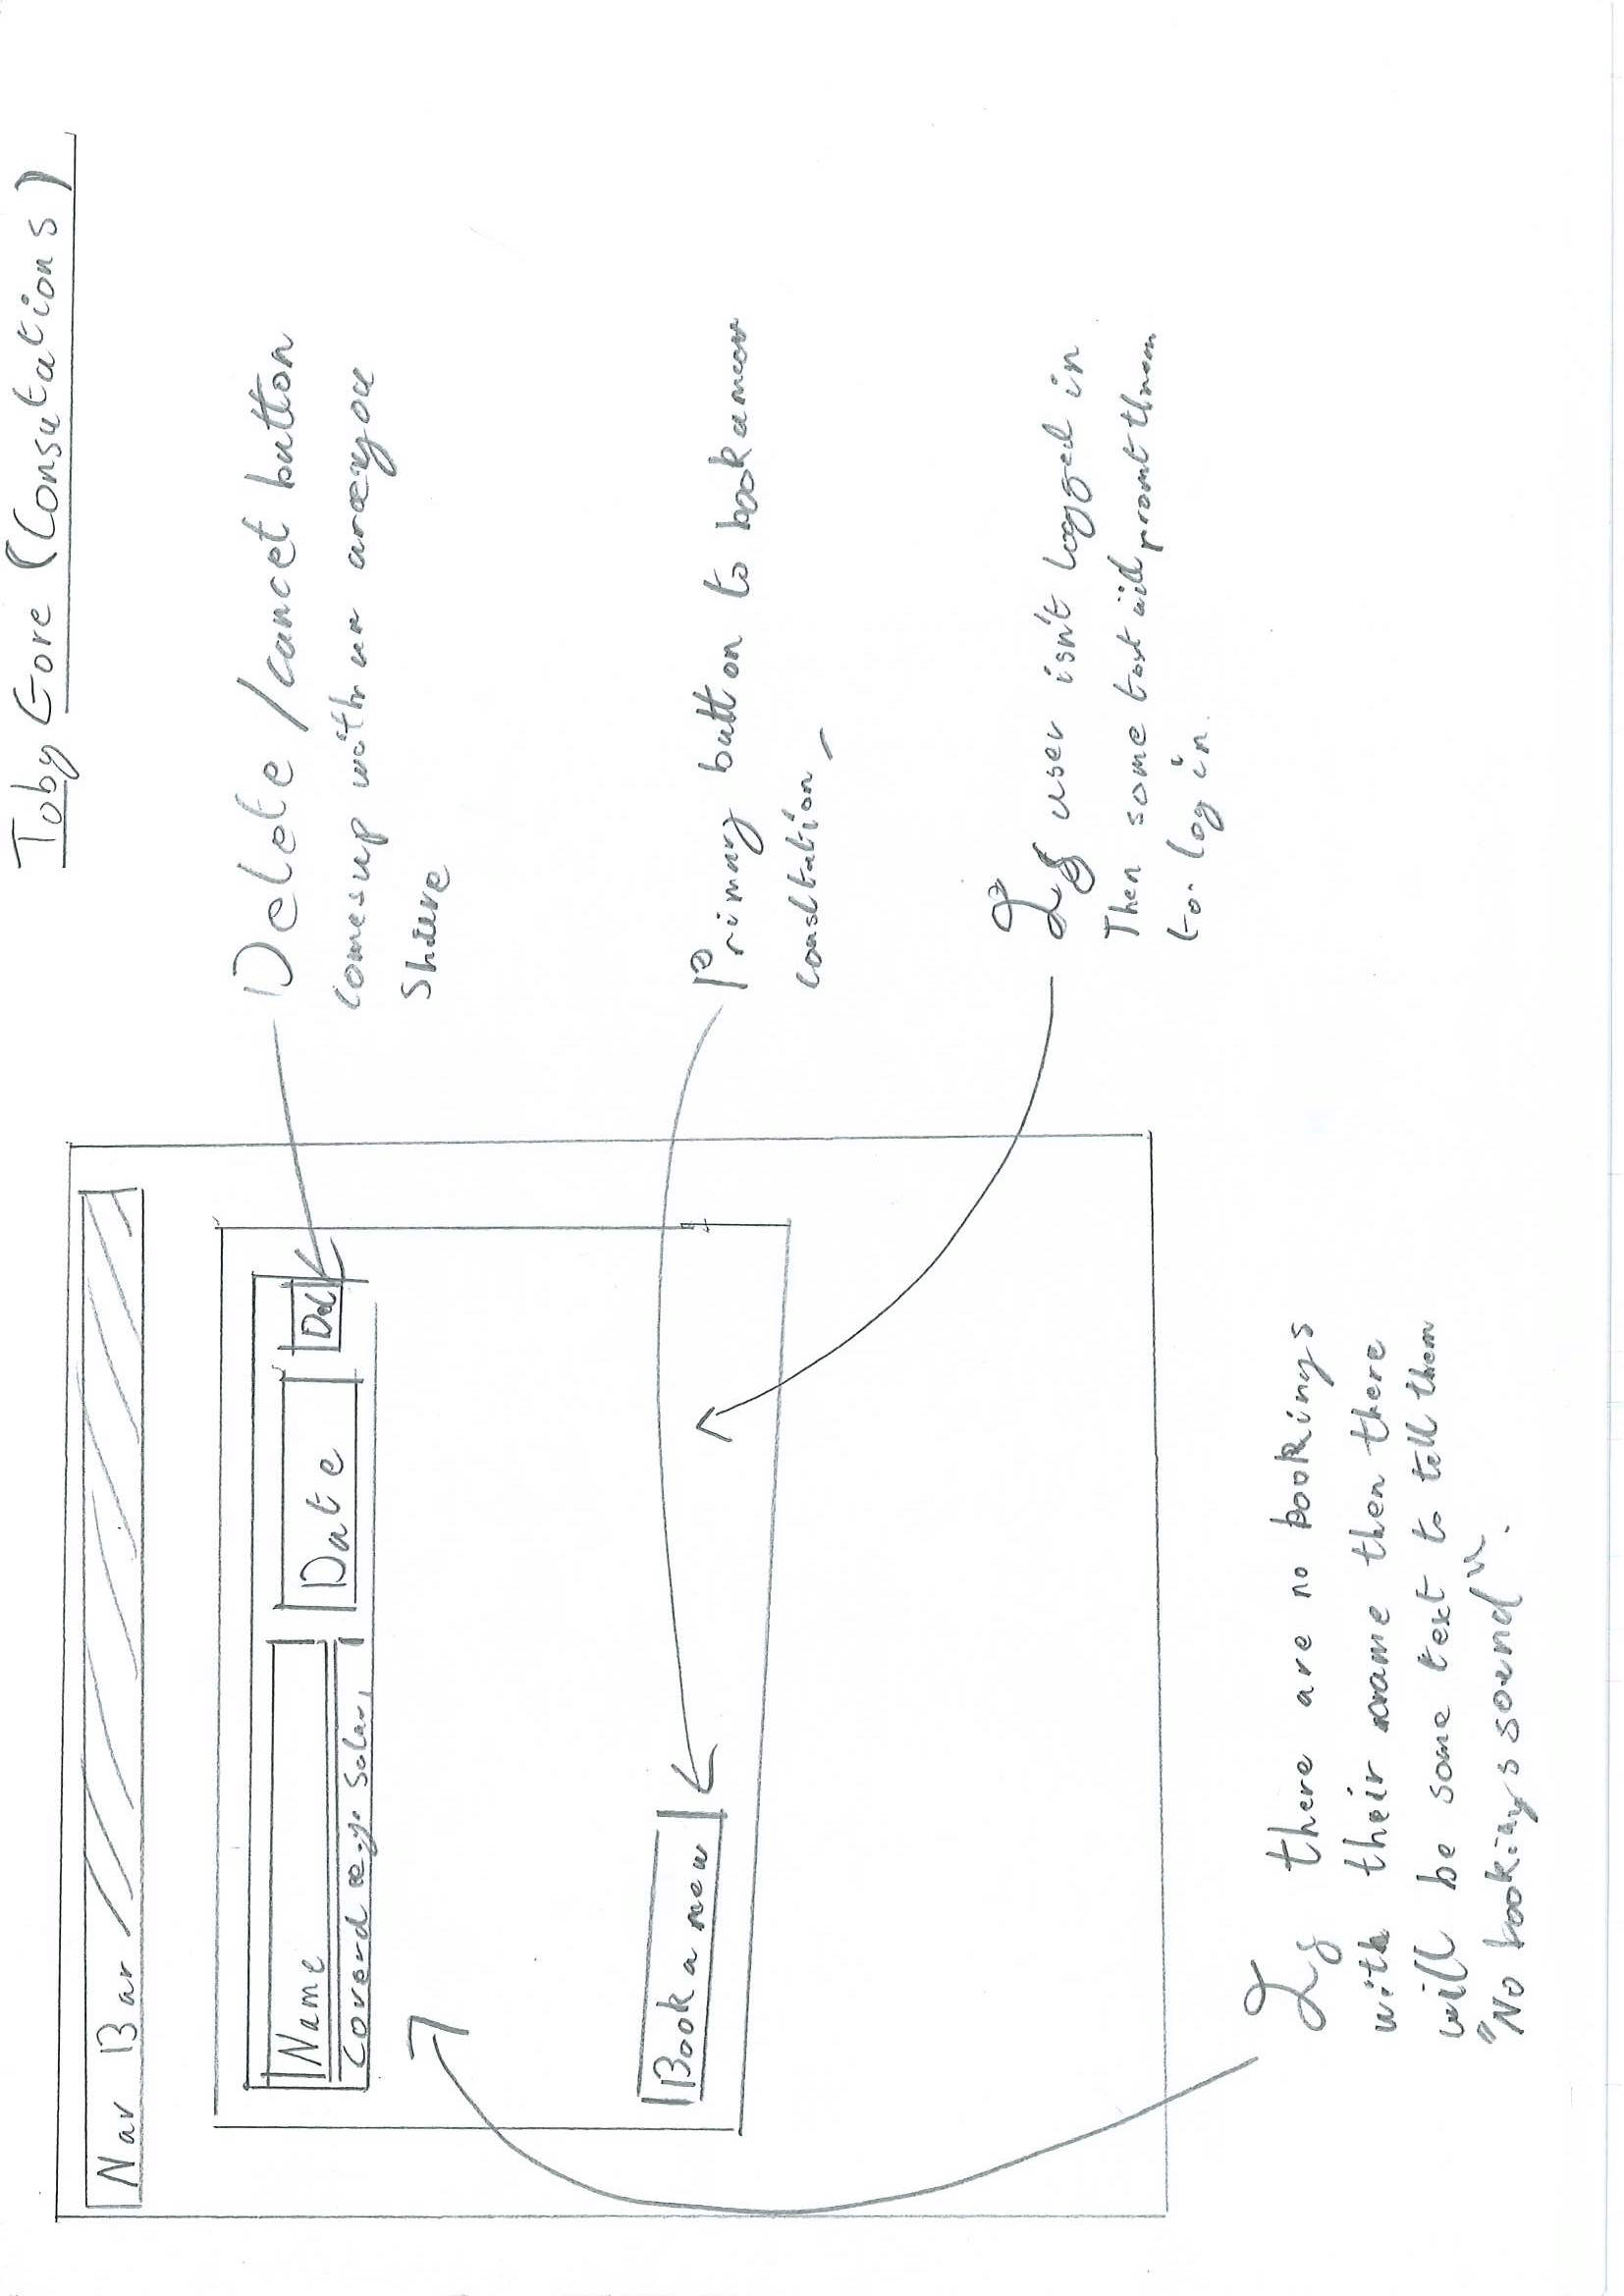 Toby Gore (Consutations)
Nav Bar
Name
Coverd eg. Solar,
Date
Del
Book a new
Delete / cancel button
comes up with an are you
shure
Primary button to book a new
consltation,
If user isn't logged in
Then some text will promt them
to log in.
If there are no bookings
with their name then there
will be some text to tell them
"No bookings found".